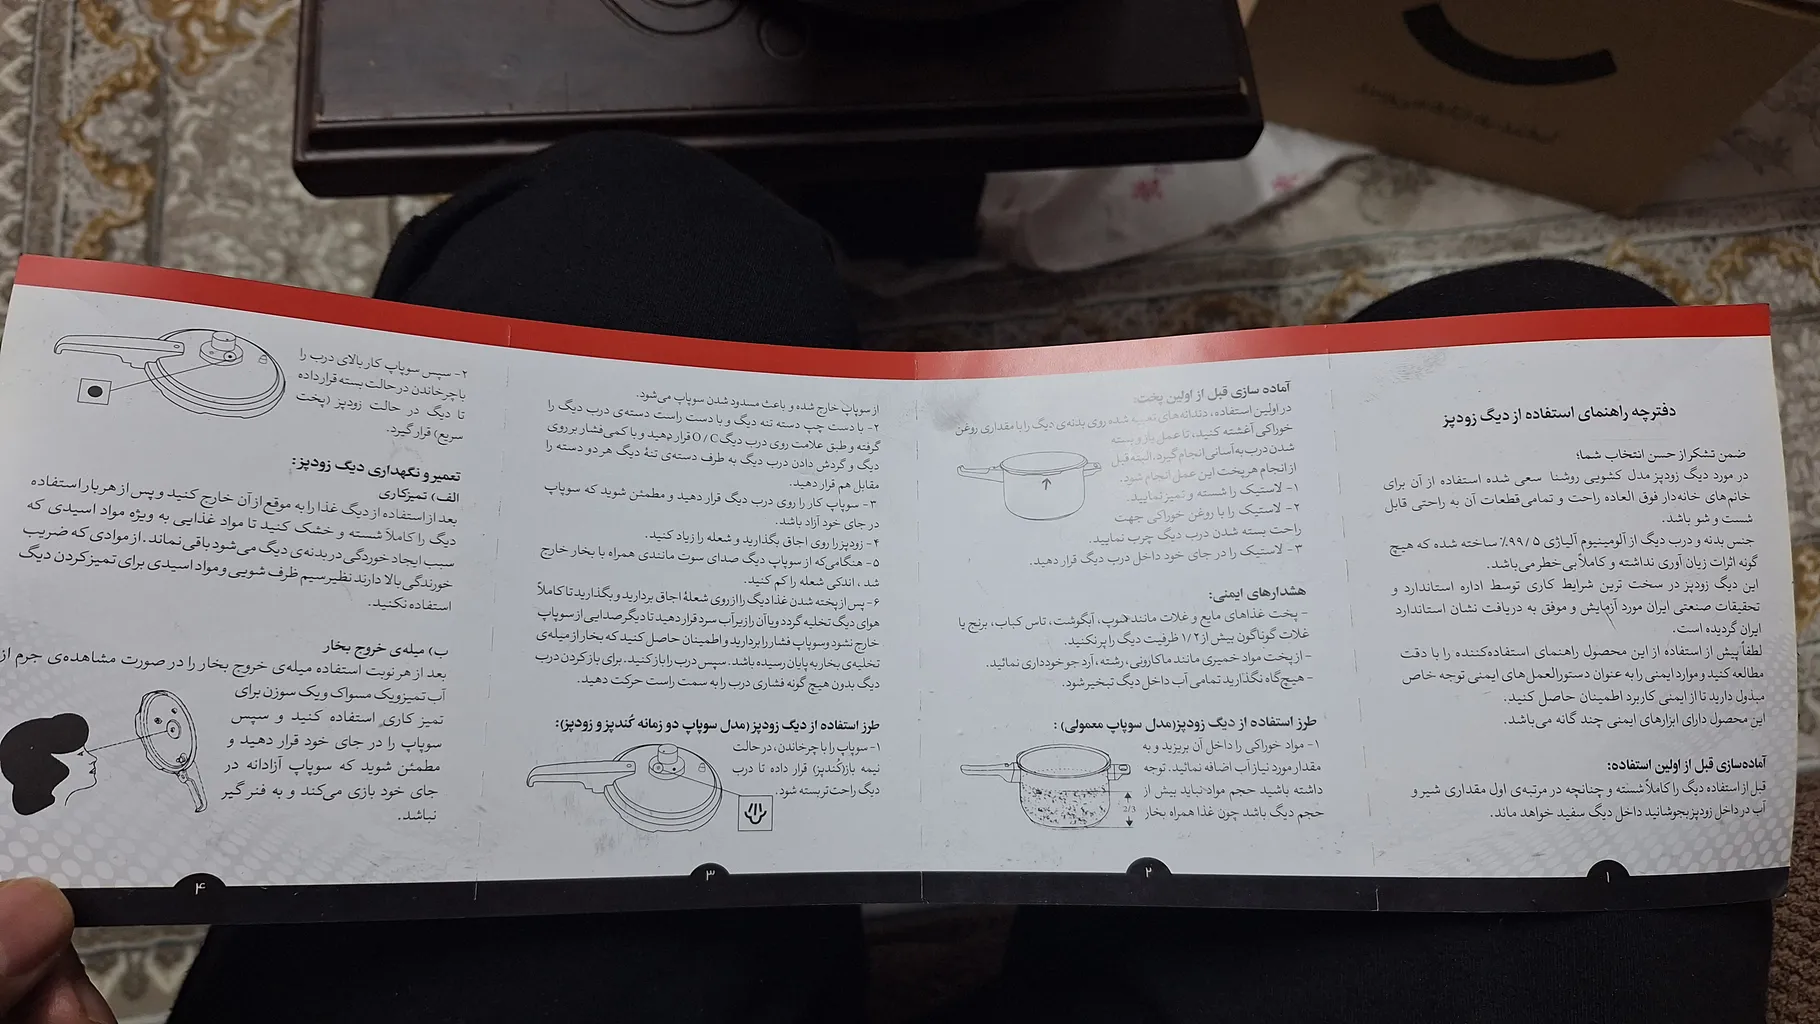 دفترچه راهنمای استفاده از دیگ زودپز
ضمن تشکر از حسن انتخاب شما؛
در مورد دیگ زودپز مدل کشویی روشنا سعی شده استفاده از آن برای
خانم‌های خانه‌دار فوق العاده راحت و تمامی قطعات آن به راحتی قابل
شست و شو باشد.
جنس بدنه و درب دیگ از آلومینیوم آلیاژی ۹۹/۵٪ ساخته شده که هیچ
گونه اثرات زیان آوری نداشته و کاملاً بی خطر می‌باشد.
این دیگ زودپز در سخت ترین شرایط کاری توسط اداره استاندارد و
تحقیقات صنعتی ایران مورد آزمایش و موفق به دریافت نشان استاندارد
ایران گردیده است.
لطفاً پیش از استفاده از این محصول راهنمای استفاده‌کننده را با دقت
مطالعه کنید و موارد ایمنی را به عنوان دستورالعمل‌های ایمنی توجه خاص
مبذول دارید تا از ایمنی کاربرد اطمینان حاصل کنید.
این محصول دارای ابزارهای ایمنی چند گانه می‌باشد.
آماده‌سازی قبل از اولین استفاده:
قبل از استفاده دیگ را کاملاً شسته و چنانچه در مرتبه‌ی اول مقداری شیر و
آب در داخل زودپز بجوشانید داخل دیگ سفید خواهد ماند.
۱
آماده سازی قبل از اولین پخت:
در اولین استفاده، دندانه‌های تعبیه شده روی بدنه‌ی دیگ را با مقداری روغن
خوراکی آغشته کنید، تا عمل باز و بسته
شدن درب به آسانی انجام گیرد. البته قبل
از انجام هر پخت این عمل انجام شود.
۱- لاستیک را شسته و تمیز نمایید.
۲- لاستیک را با روغن خوراکی جهت
راحت بسته شدن درب دیگ چرب نمایید.
۳- لاستیک را در جای خود داخل درب دیگ قرار دهید.
هشدارهای ایمنی:
- پخت غذاهای مایع و غلات مانند سوپ، آبگوشت، تاس کباب، برنج یا
غلات گوناگون بیش از ۱/۲ ظرفیت دیگ را پر نکنید.
- از پخت مواد خمیری مانند ماکارونی، رشته، آرد جو خودداری نمائید.
- هیچ‌گاه نگذارید تمامی آب داخل دیگ تبخیر شود.
طرز استفاده از دیگ زودپز (مدل سوپاپ معمولی):
۱- مواد خوراکی را داخل آن بریزید و به
مقدار مورد نیاز آب اضافه نمائید. توجه
داشته باشید حجم مواد نباید بیش از
2/3
حجم دیگ باشد چون غذا همراه بخار
۲
از سوپاپ خارج شده و باعث مسدود شدن سوپاپ می‌شود.
۲- با دست چپ دسته تنه دیگ و با دست راست دسته‌ی درب دیگ را
گرفته و طبق علامت روی درب دیگ O / C قرار دهید و با کمی فشار بر روی
دیگ و گردش دادن درب دیگ به طرف دسته‌ی تنهٔ دیگ هر دو دسته را
مقابل هم قرار دهید.
۳- سوپاپ کار را روی درب دیگ قرار دهید و مطمئن شوید که سوپاپ
در جای خود آزاد باشد.
۴- زودپز را روی اجاق بگذارید و شعله را زیاد کنید.
۵- هنگامی‌که از سوپاپ دیگ صدای سوت مانندی همراه با بخار خارج
شد، اندکی شعله را کم کنید.
۶- پس از پخته شدن غذا دیگ را از روی شعلهٔ اجاق بردارید و بگذارید تا کاملاً
هوای دیگ تخلیه گردد و یا آن را زیر آب سرد قرار دهید تا دیگر صدایی از سوپاپ
خارج نشود و سوپاپ فشار را بردارید و اطمینان حاصل کنید که بخار از میله‌ی
تخلیه‌ی بخار به پایان رسیده باشد. سپس درب را باز کنید. برای باز کردن درب
دیگ بدون هیچ گونه فشاری درب را به سمت راست حرکت دهید.
طرز استفاده از دیگ زودپز (مدل سوپاپ دو زمانه کُندپز و زودپز):
۱- سوپاپ را با چرخاندن، در حالت
نیمه باز (کُندپز) قرار داده تا درب
دیگ راحت‌تر بسته شود.
۳
۲- سپس سوپاپ کار بالای درب را
با چرخاندن در حالت بسته قرار داده
تا دیگ در حالت زودپز (پخت
سریع) قرار گیرد.
تعمیر و نگهداری دیگ زودپز:
الف) تمیزکاری
بعد از استفاده از دیگ غذا را به موقع از آن خارج کنید و پس از هر بار استفاده
دیگ را کاملاً شسته و خشک کنید تا مواد غذایی به ویژه مواد اسیدی که
سبب ایجاد خوردگی در بدنه‌ی دیگ می‌شود باقی نماند. از موادی که ضریب
خورندگی بالا دارند نظیر سیم ظرف شویی و مواد اسیدی برای تمیز کردن دیگ
استفاده نکنید.
ب) میله‌ی خروج بخار
بعد از هر نوبت استفاده میله‌ی خروج بخار را در صورت مشاهده‌ی جرم از
آب تمیز و یک مسواک و یک سوزن برای
تمیز کاری استفاده کنید و سپس
سوپاپ را در جای خود قرار دهید و
مطمئن شوید که سوپاپ آزادانه در
جای خود بازی می‌کند و به فنر گیر
نباشد.
۴